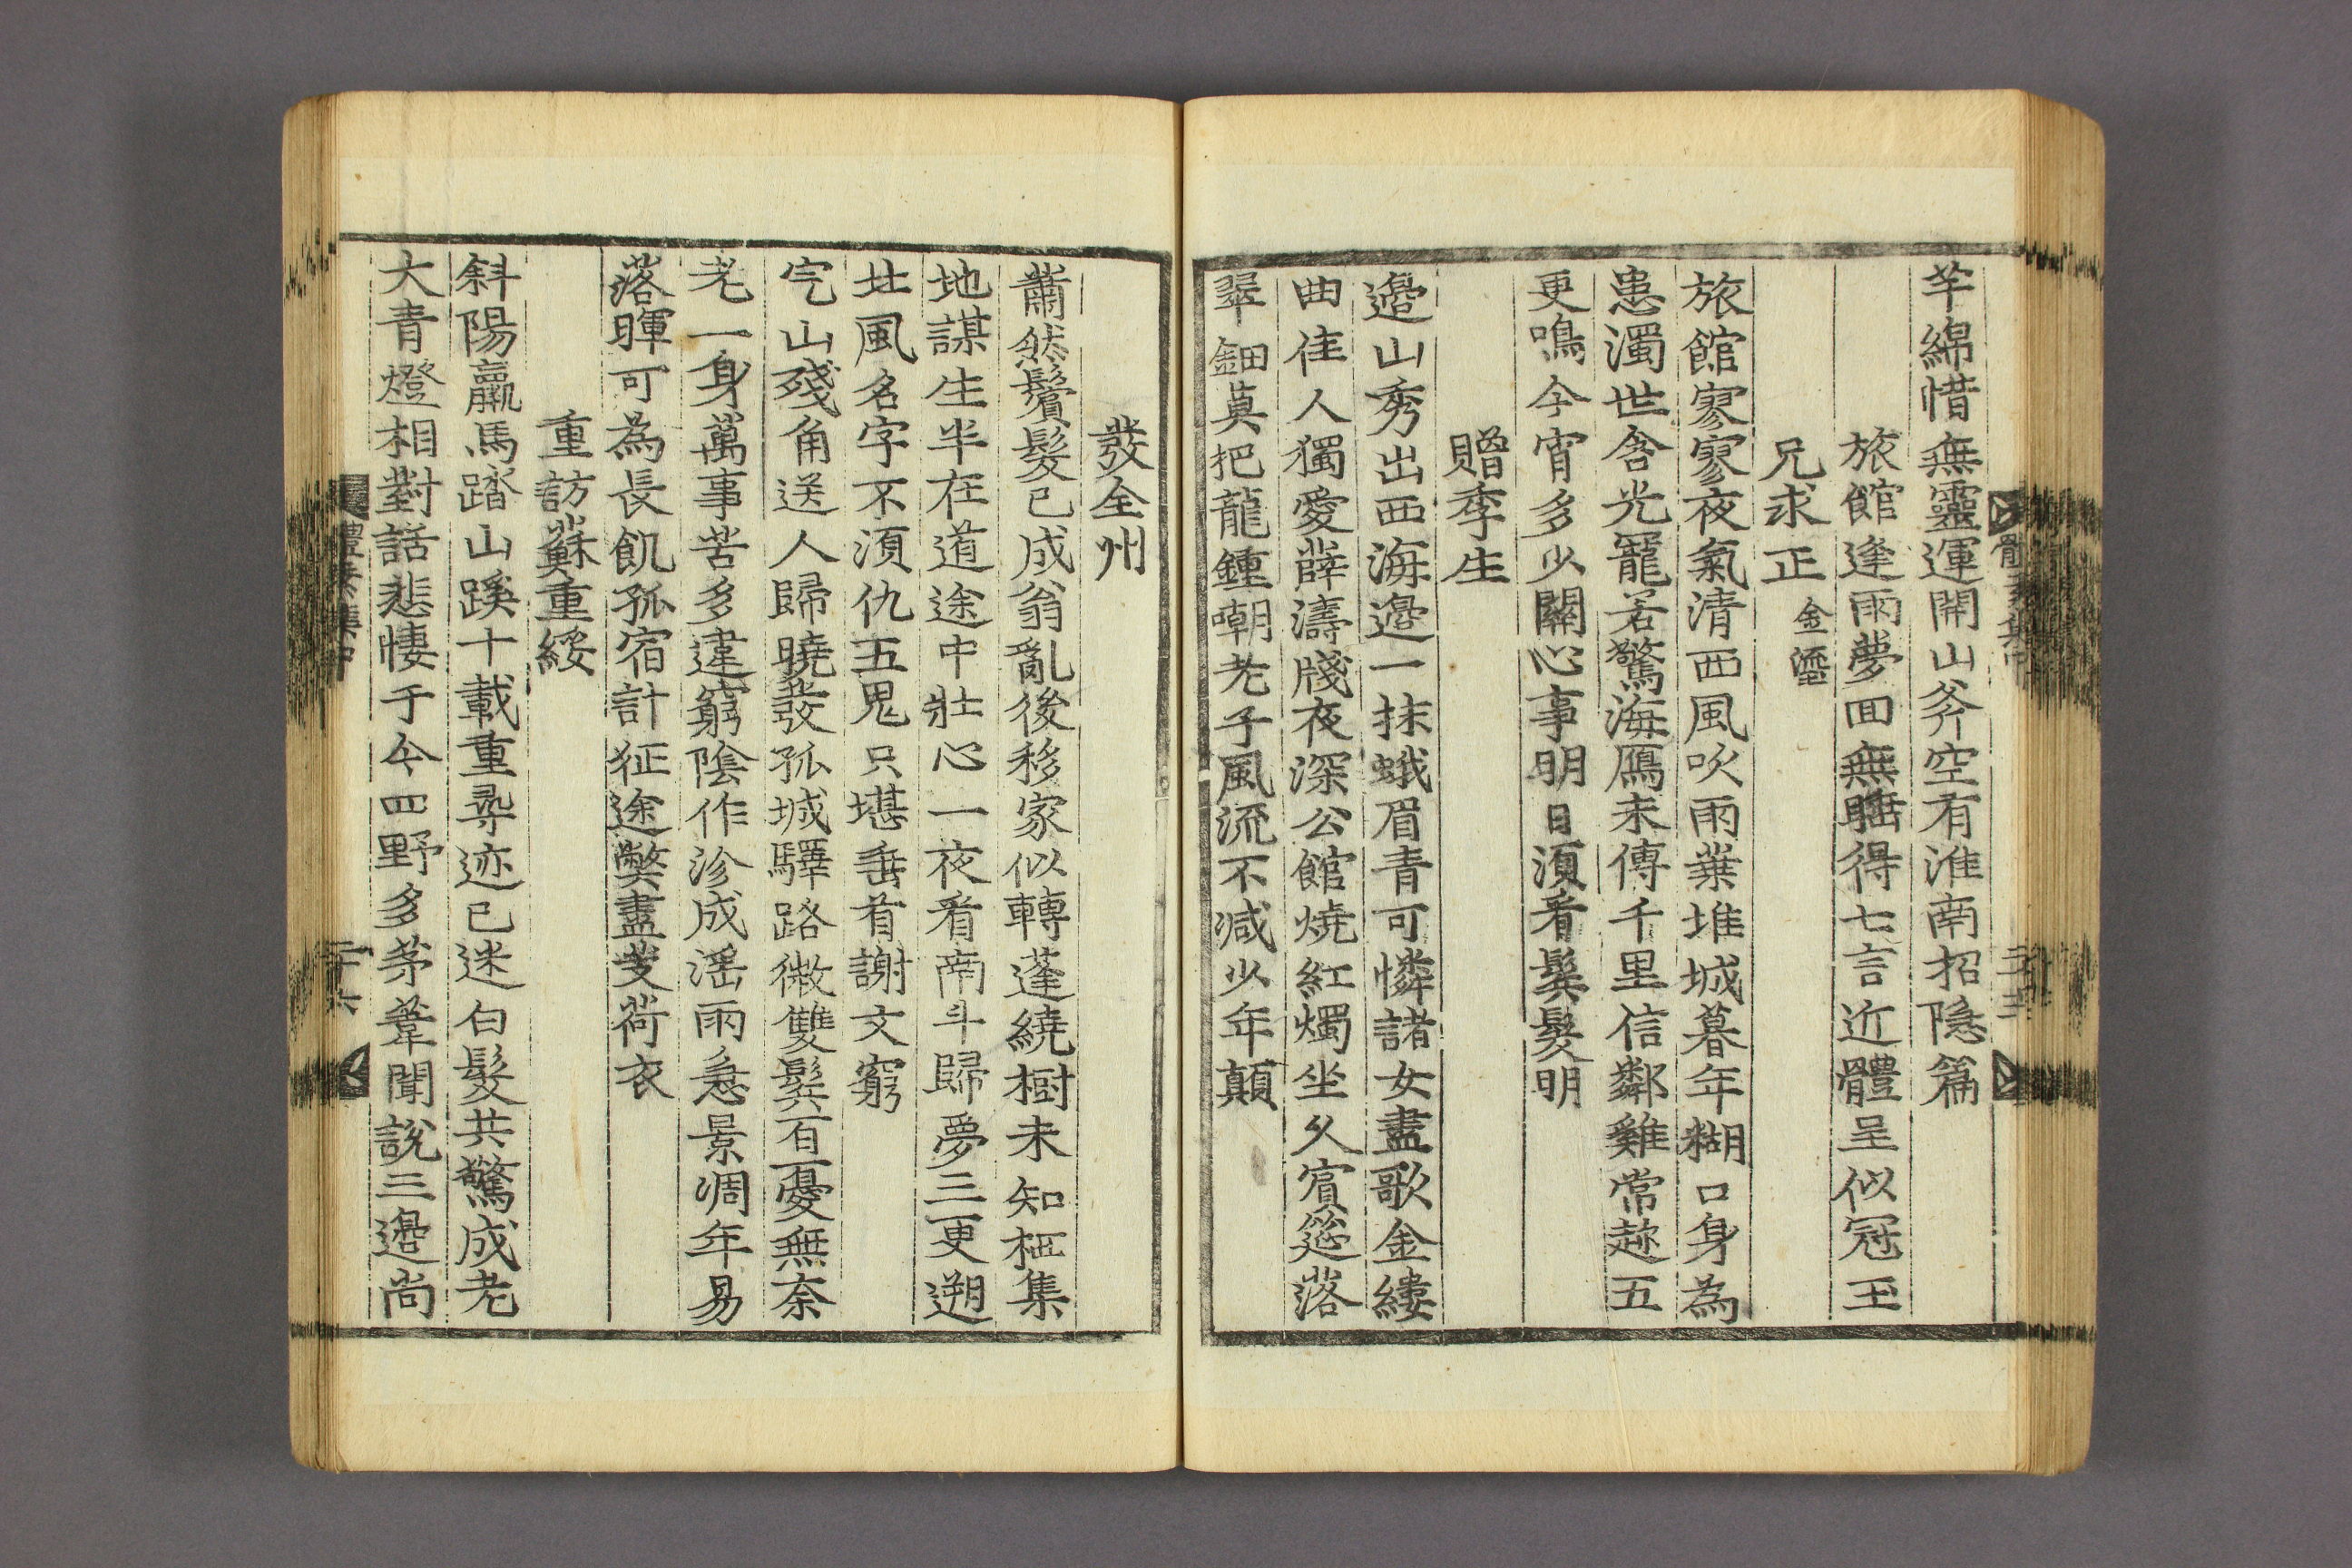 芊綿惜無靈運開山斧空有淮南招隠篇
旅館逢雨夢回無聊得七言近體呈似冠玉
兄求正 金瑬
旅館寥寥夜氣清西風吹雨葉堆城暮年糊口身為
患濁世含光寵若驚海鴈未傳千里信鄰雞常趂五
更鳴今宵多少關心事明日須看鬂髮明
贈季生
邉山秀出西海邉一抹蛾眉青可憐諸女盡歌金縷
曲佳人獨愛薛濤牋夜深公館燒紅燭坐久賔筵落
翠鈿莫把龍鍾嘲老子風流不减少年顛
發全州
蕭然鬢髮已成翁亂後移家似轉蓬繞樹未知栖集
地謀生半在道途中壯心一夜看南斗歸夢三更遡
北風名字不須仇五鬼只堪垂首謝文窮
乞山殘角送人歸曉發孤城驛路微雙鬂百憂無奈
老一身萬事苦多違窮陰作沴成滛雨急景凋年易
落暉可為長飢孤宿計征途獘盡芰荷衣
重訪蘇重綏
斜陽羸馬踏山蹊十載重尋迹已迷白髮共驚成老
大青燈相對話悲悽于今四野多茅葦聞說三邉尚
體素集中
二十六